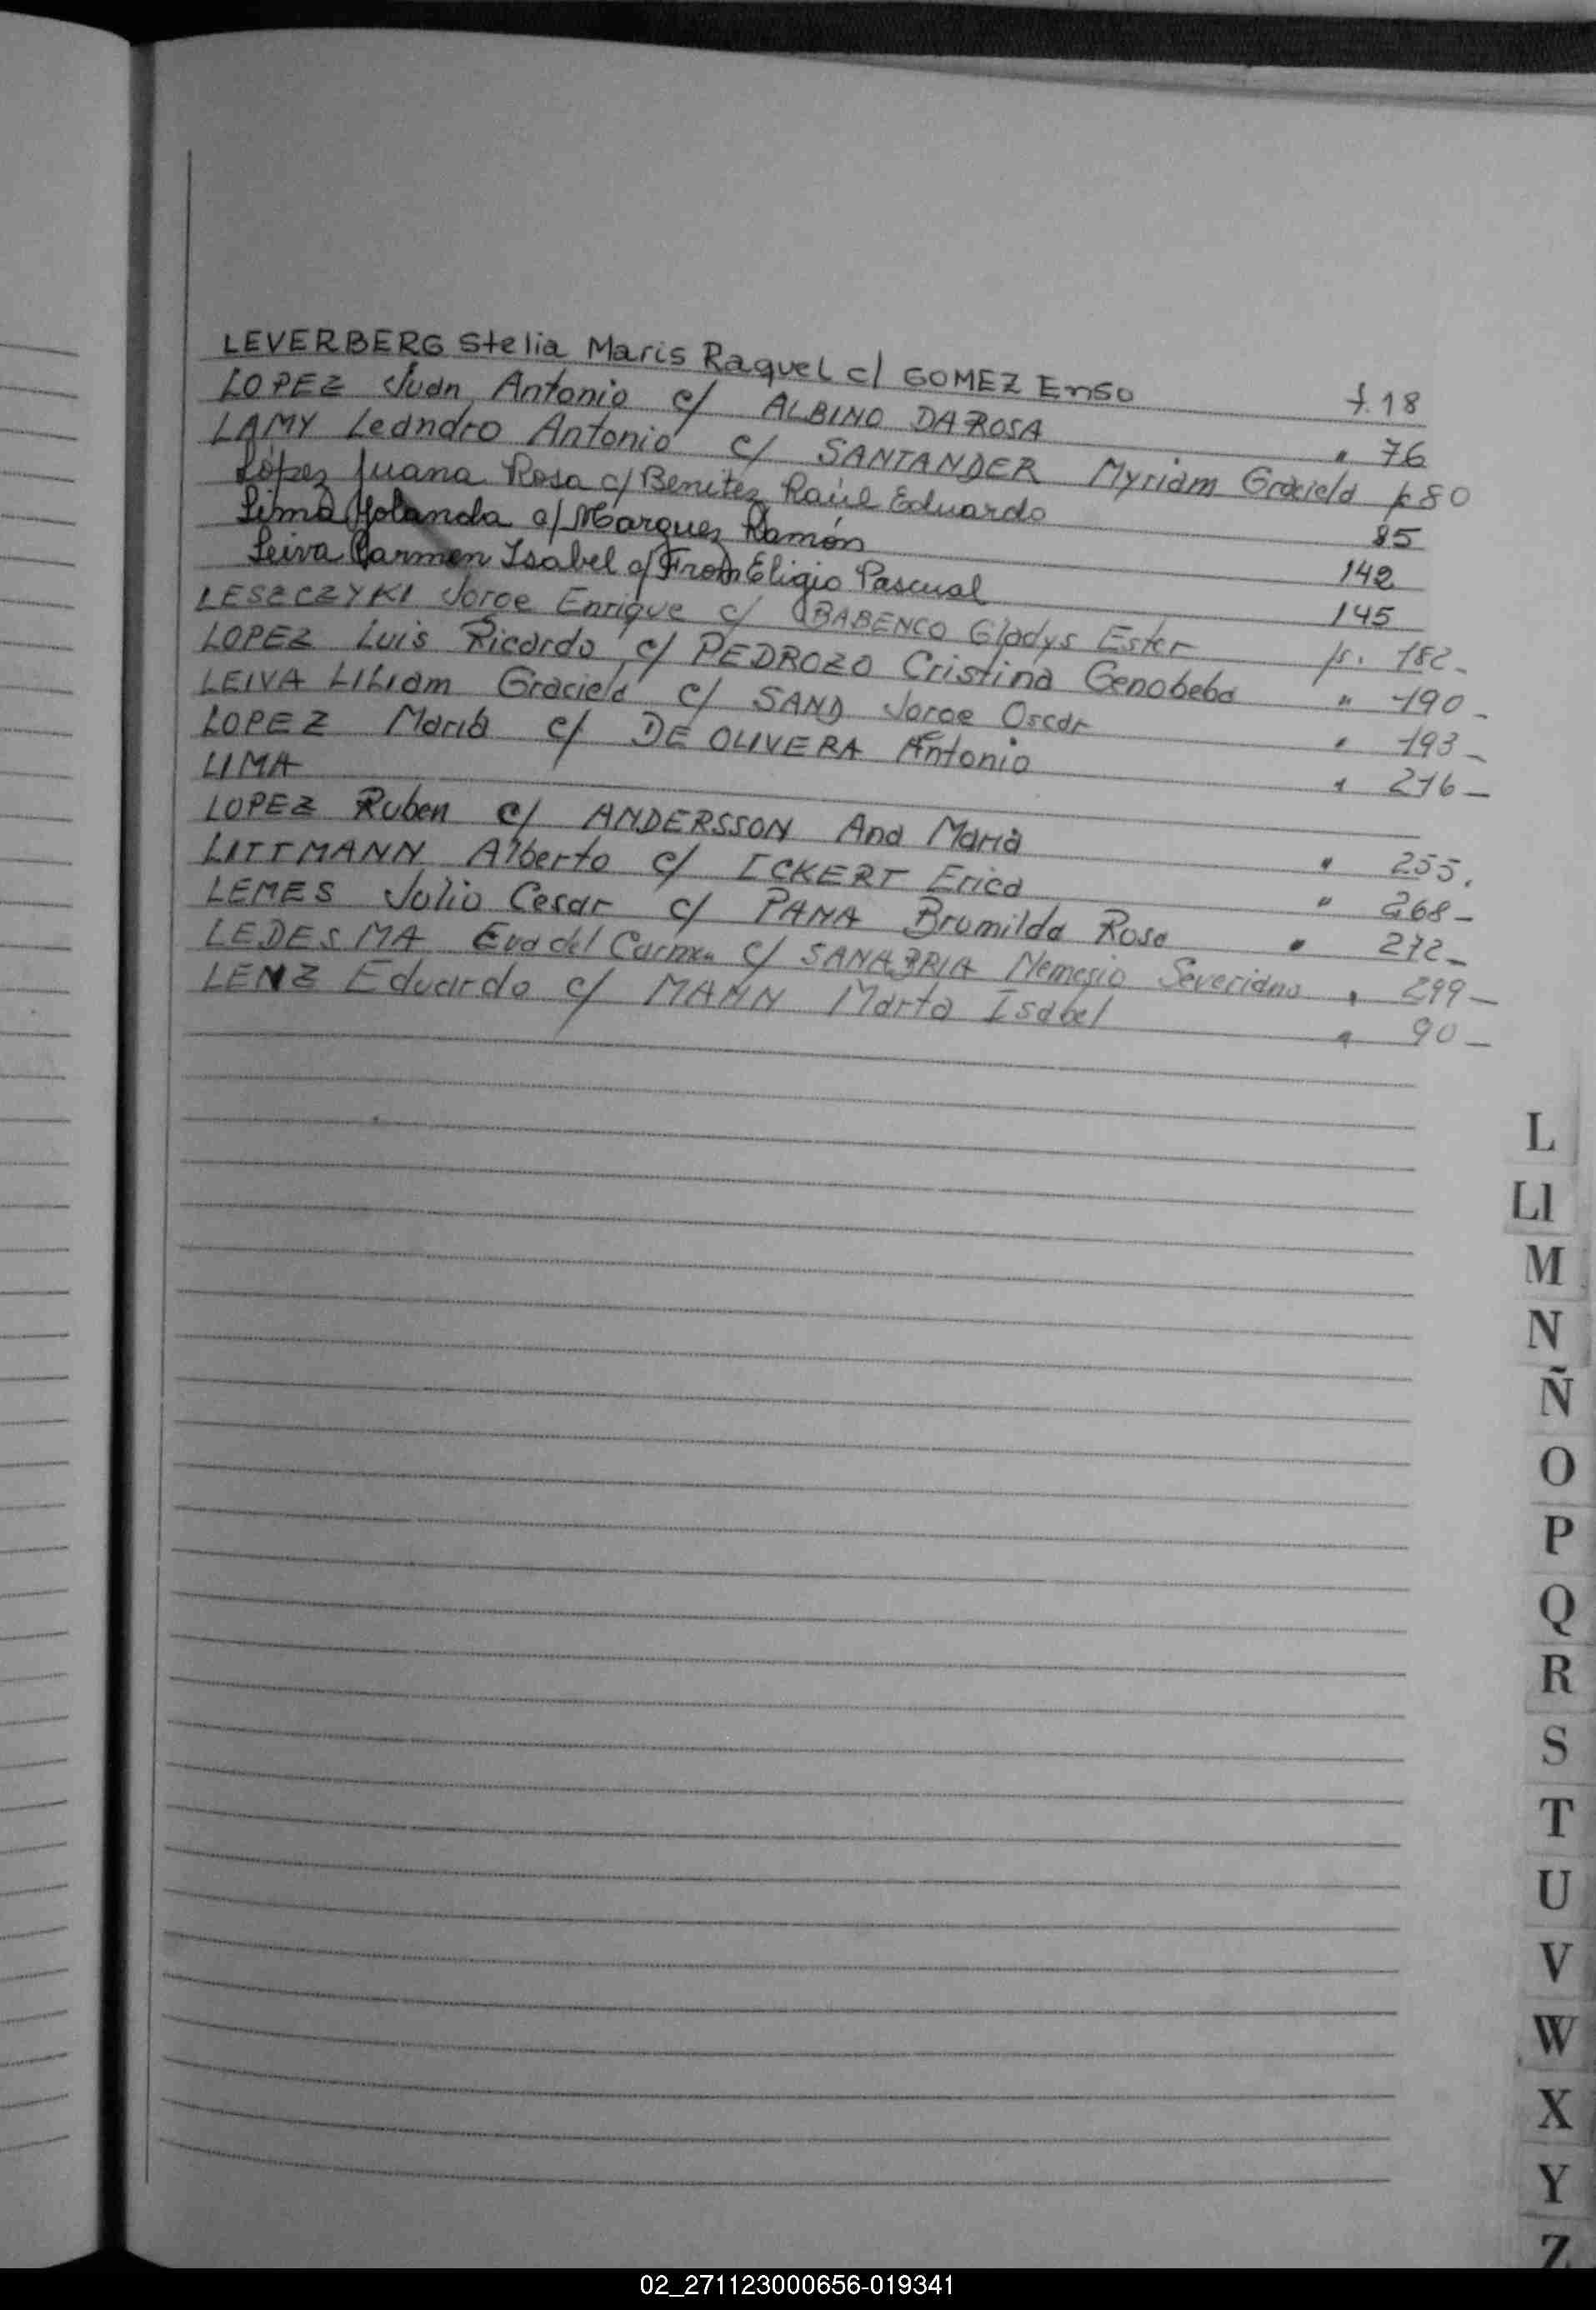 LEVERBERG Stelia Maris Raquel c/ GOMEZ Enso f. 18
LOPEZ Juan Antonio c/ ALBINO DA ROSA " 76
LAMY Leandro Antonio c/ SANTANDER Myriam Graciela f 80
López Juana Rosa c/ Benitez Raúl Eduardo 85
Lima Yolanda c/ Marquez Ramón 142
Leiva Carmen Isabel c/ From Eligio Pascual 145
LESZCZYKI Jorge Enrique c/ BABENCO Gladys Ester fs. 182-
LOPEZ Luis Ricardo c/ PEDROZO Cristina Genobeba " 190-
LEIVA Liliam Graciela c/ SAND Jorge Oscar " 193-
LOPEZ Maria c/ DE OLIVERA Antonio " 216-
LIMA
LOPEZ Ruben c/ ANDERSSON Ana Maria " 255.
LITTMANN Alberto c/ ICKERT Erica " 268-
LEMES Julio Cesar c/ Brumilda Rosa " 272-
LEDESMA Eva del Carmen c/ SANABRIA Nemesio Severiano " 299-
LENZ Eduardo c/ MANN Marta Isabel " 90-
L
Ll
M
N
Ñ
O
P
Q
R
S
T
U
V
W
X
Y
Z
02_271123000656-019341